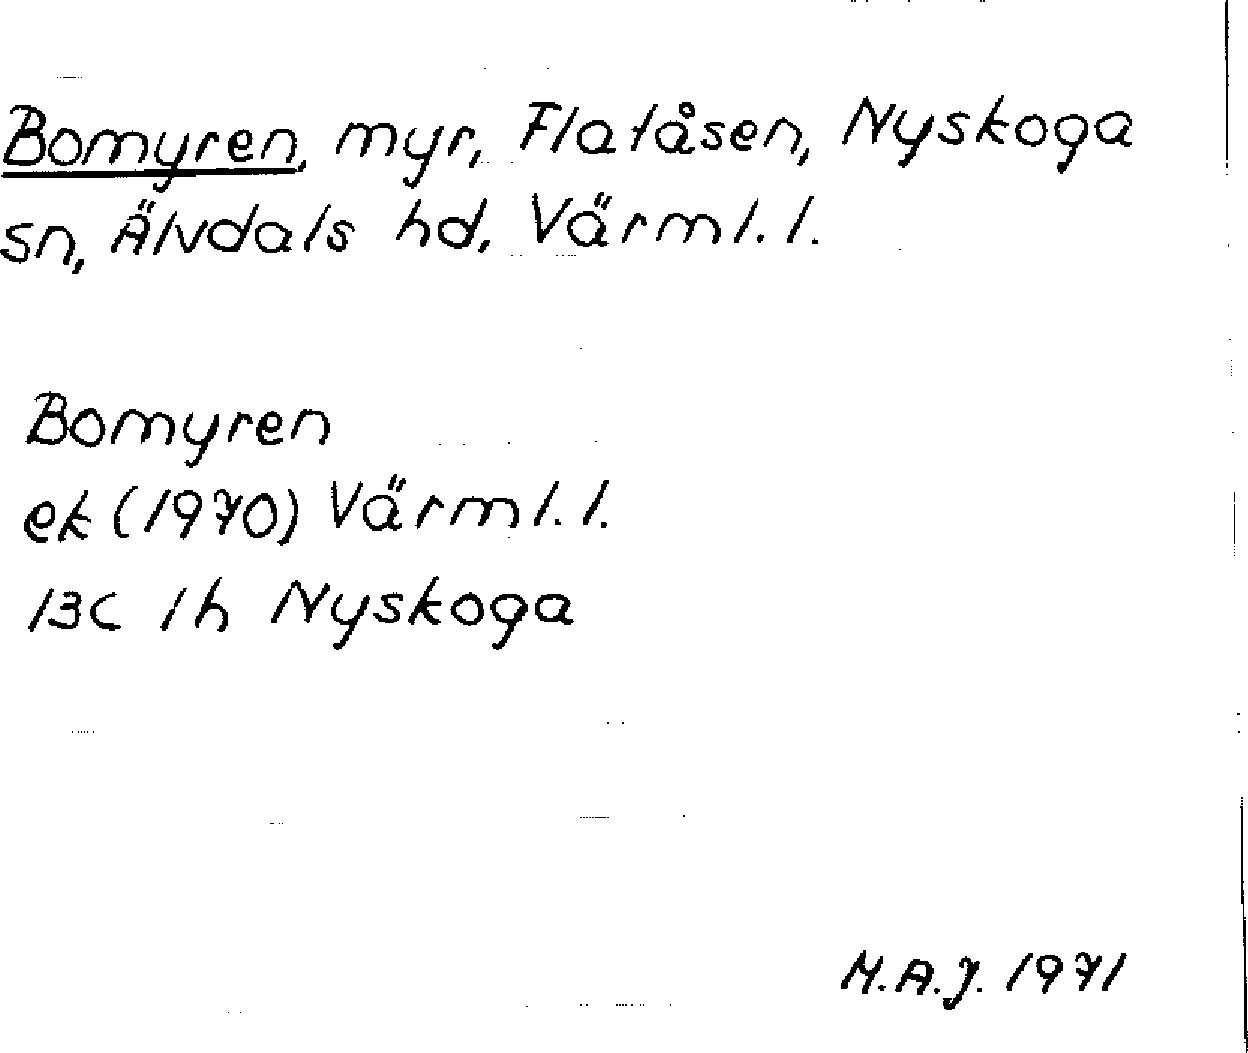 Bomyren, myr, Flatåsen, Nyskoga
sn, Älvdals hd, Värml. l.
Bomyren
ek (1970) Värml. l.
13C 1h Nyskoga
M.A.J. 1971